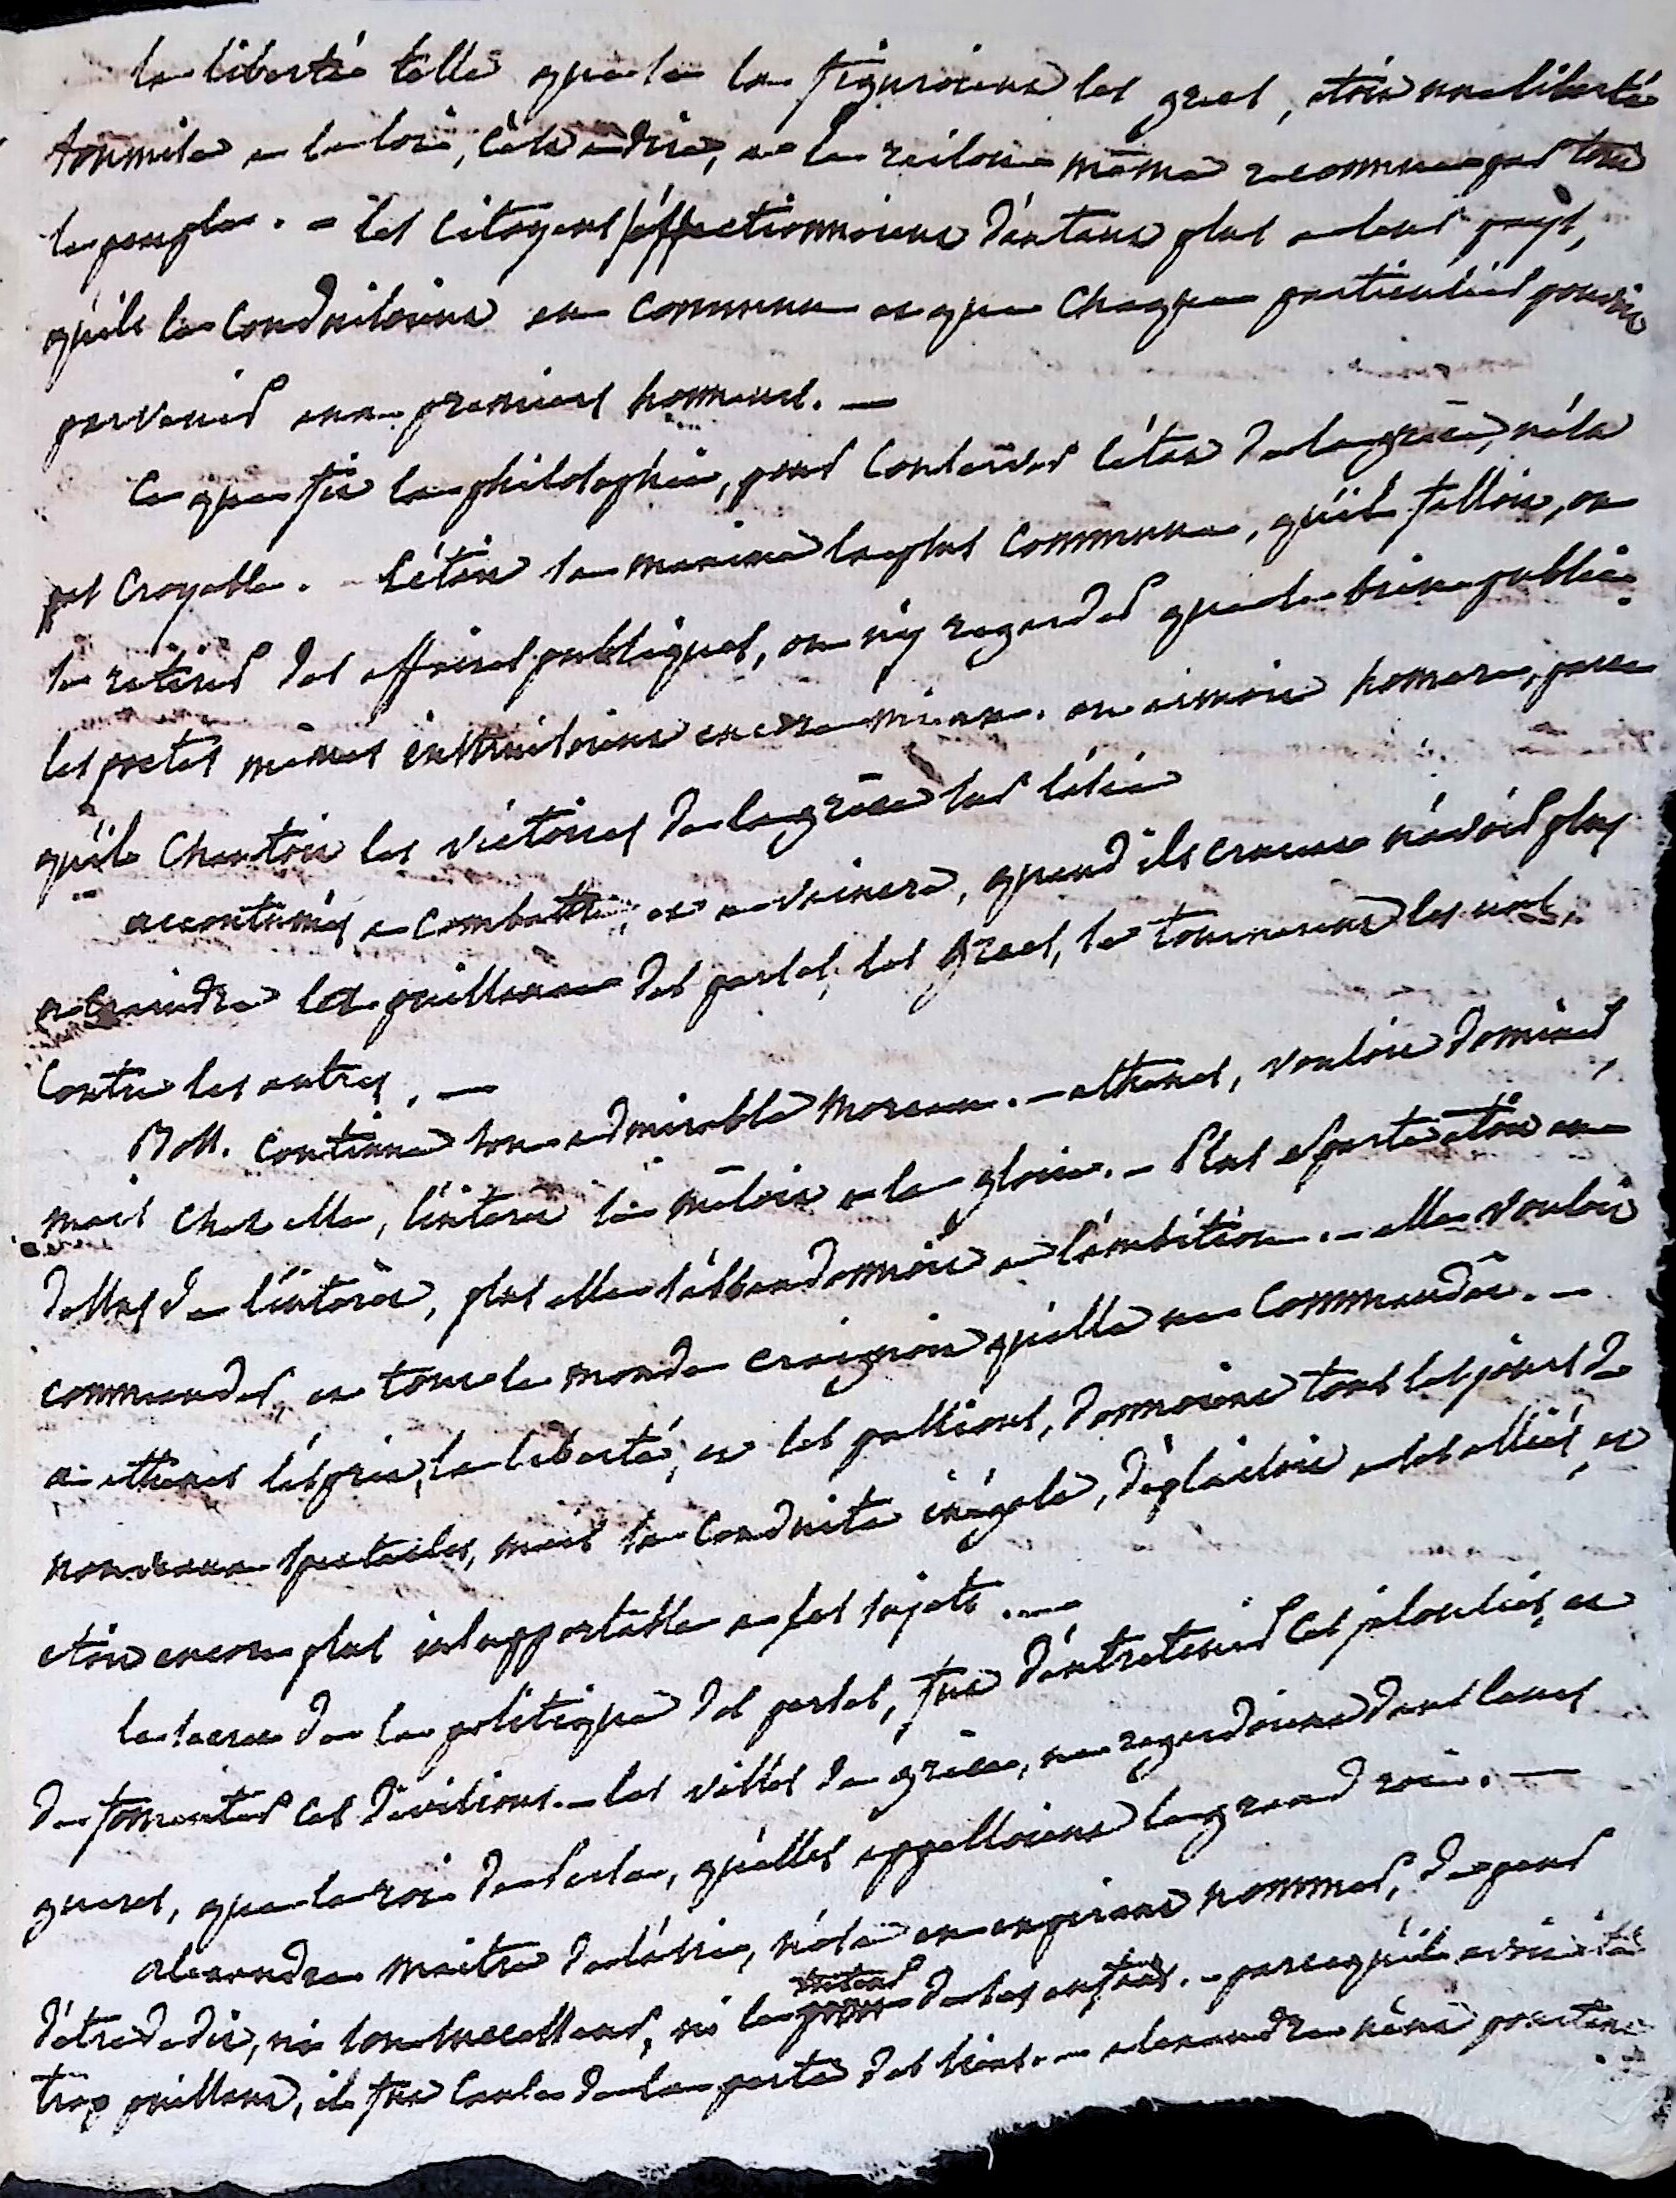 la liberté telle que se la figuroient les grecs, étoit une liberté
soumise a la loi, c'est a dire, a la raison même reconnue par tout
le peuple. - les citoyens s'affectionnoient d'autant plus a leur pays,
qu'ils le conduisoient en commun et que chaque particulier pouvoit
parvenir aux premiers honneurs. —
ce que fit la philosophie, pour conserver l'état de la grèce, n'est
pas croyable. - c'étoit la maxime la plus commune, qu'il falloit, ou
se retirer des affaires publiques, ou n'y regarder que le bien public.
les poetes mêmes instruisoient encore mieux. on aimoit homere, parce
qu'il chantoit les victoires de la grèce sur l'asie
accoutumés a combattre, et a vaincre, quand ils crurent n'avoir plus
a craindre la puissance des perses, les grecs, se tournerent les uns,
contre les autres, —
Boss. continue son admirable morceau. - athenes, vouloit dominer,
mais chez elle, l'intéret se mêloit a la gloire. - Plus sparte étoit au
dessus de l'intérêt, plus elle s'abbandonnoit a l'ambition. - elle vouloit
commander, et tout le monde craignoit qu'elle ne commandât. -
a athenes l'esprit, la liberté, et les passions, donnoient tous les jours de
nouveaux spectacles, mais sa conduite inégale, déplaisoit a ses alliés, et
étoit encore plus insupportable a ses sujets. —
le secret de la politique des perses, fut d'entretenir ces jalousies, et
de fomenter ces divisions. - les villes de grèce, ne regardoient dans leurs
guerres, que le roi de Perse, qu'elles appelloient le grand roi. —
alexandre maitre de l'asie, n'osa en expirant nommer, de peur
d'être dedit, ni son successeur, ni le tuteur de ses enfans. - parce qu'il avoit été
trop puissant, il fut cause de la perte des siens. - alexandre n'eut pourtant